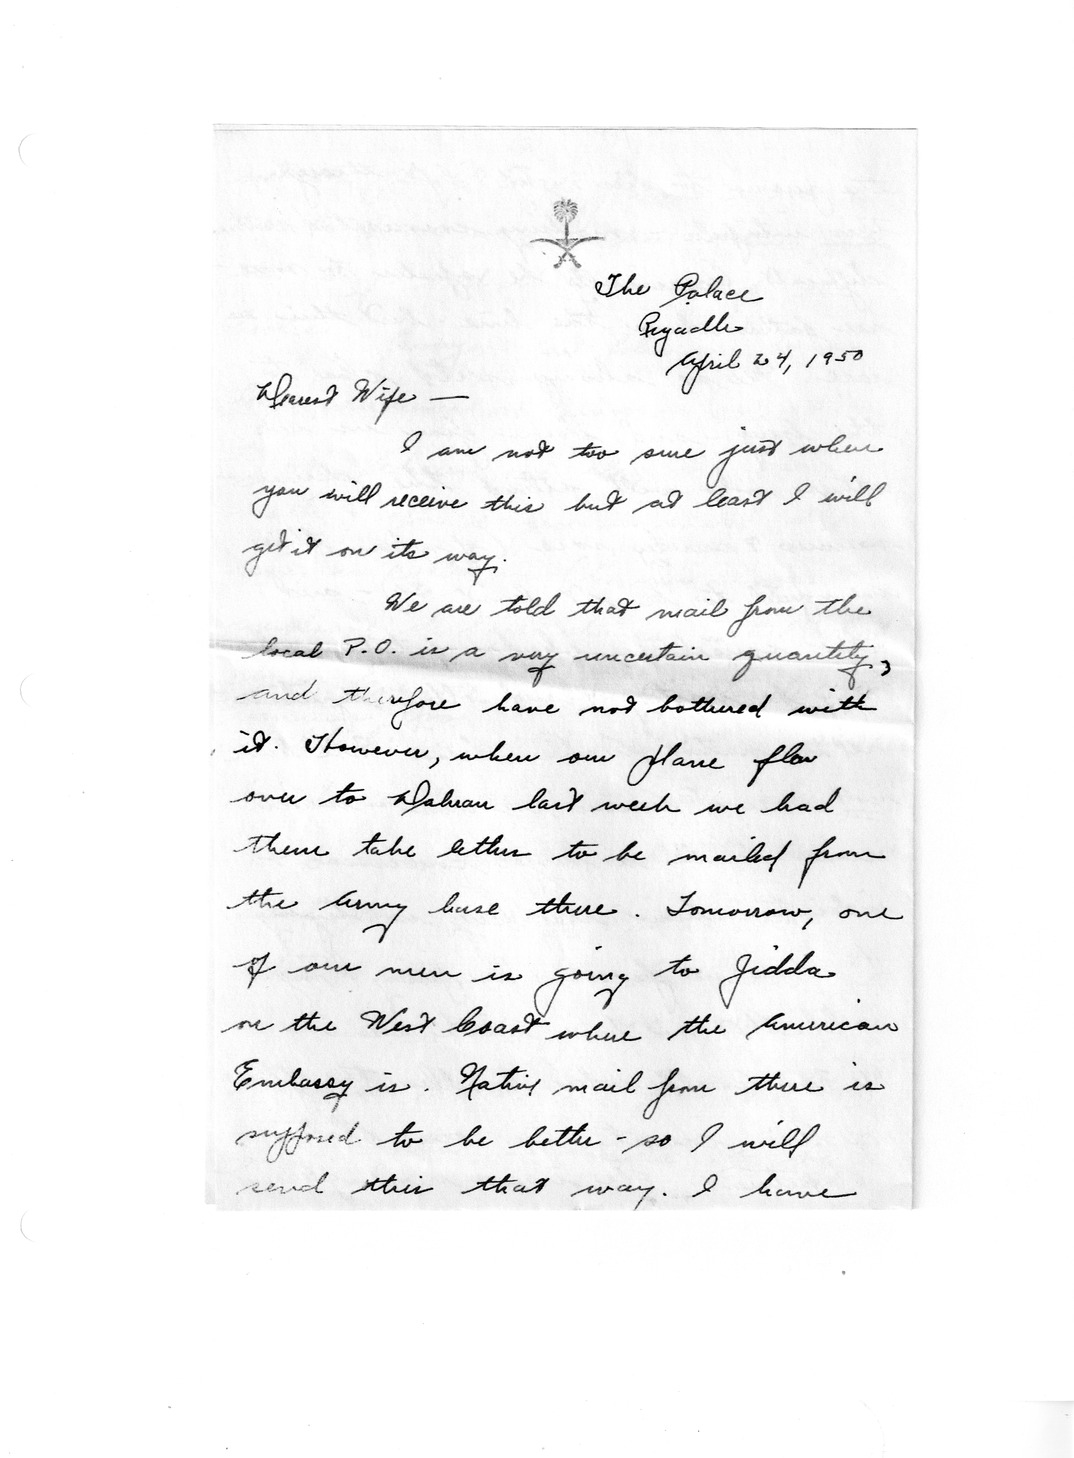 The Palace
Riyadh
April 24, 1950
Dearest Wife —
I am not too sure just when
you will receive this but at least I will
get it on its way.
We are told that mail from the
local P.O. is a very uncertain quantity,
and therefore have not bothered with
it. However, when our plane flew
over to Dahran last week we had
them take letters to be mailed from
the Army base there. Tomorrow, one
of our men is going to Jidda
on the West Coast where the American
Embassy is. Native mail from there is
supposed to be better - so I will
send this that way. I have